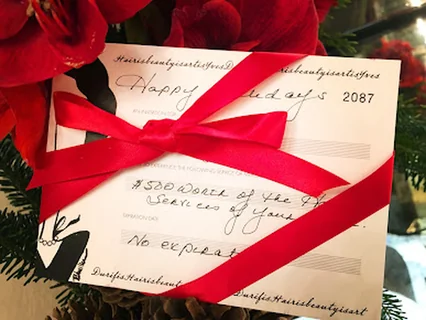 HairisbeautyisartisYvesD
isbeautyisartisYves
Happy
days 2087
$500 worth of the
Services of your
No expirat
DurifisHairisbeaut
DurifisHairisbeautyisart